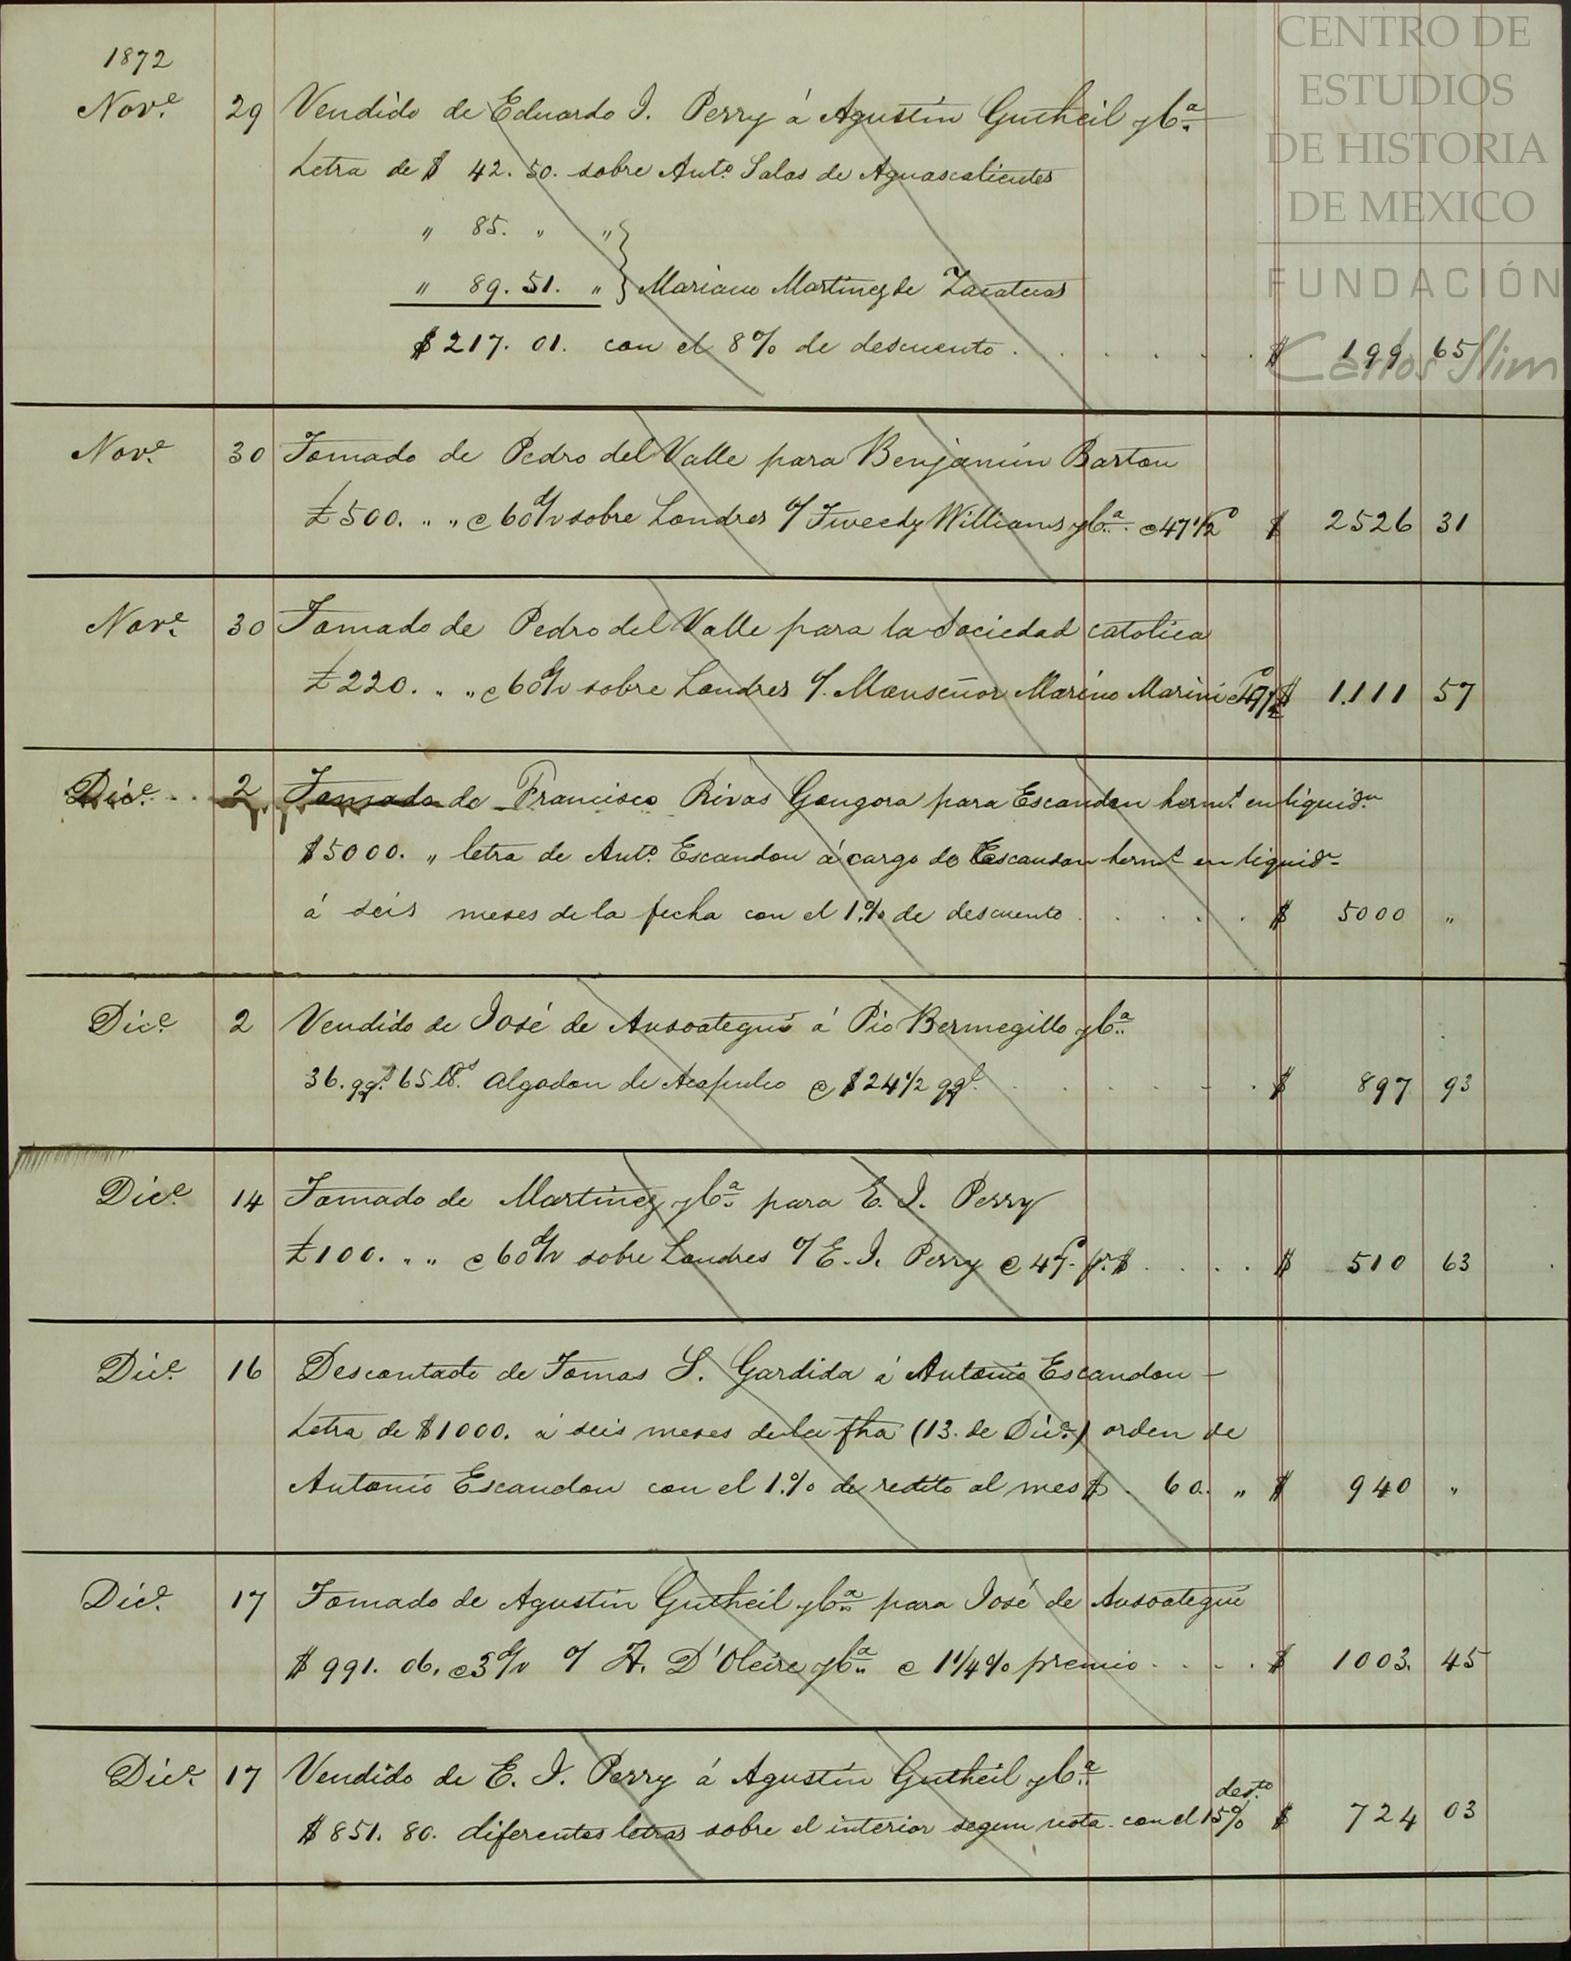 CENTRO DE
ESTUDIOS
DE HISTORIA
DE MEXICO
FUNDACIÓN
Carlos Slim
1872
Nov.e 29 Vendido de Eduardo I. Perry á Agustín Gutheil y Ca.
Letra de $ 42. 50. sobre Anto. Salas de Aguascalientes
" 85. " "
" 89. 51. " } Mariano Martinez de Zacatecas
$ 217. 01. con el 8% de descuento . . . . . $ 199 65
Nov.e 30 Tomado de Pedro del Valle para Benjamin Barton
£500. " " @ 60 d/v sobre Londres o/ Tweedy Williams y Ca. @ 47 1/2 $ 2526 31
Nov.e 30 Tomado de Pedro del Valle para la Sociedad catolica
£220. " " @ 60 d/v sobre Londres o/. Monseñor Marino Marini @ 47 1/2 $ 1.111 57
Dice. 2 Tomado de Francisco Rivas Gongora para Escandon herms. en liquidn.
$5000. " letra de Anto. Escandon á cargo de Escandon herms. en liquidn.
á seis meses de la fecha con el 1.% de descuento . . . . . $ 5000 "
Dice. 2 Vendido de José de Ansoategui á Pio Bermegillo y Ca.
36. qqs. 65 lbs. algodon de Acapulco @ $24 1/2 qql. . . . . . $ 897 93
Dice. 14 Tomado de Martinez y Ca. para E. I. Perry
£100. " " @ 60 d/v sobre Londres o/ E. I. Perry @ 47. p. $ . . . . $ 510 63
Dice. 16 Descontado de Tomas S. Gardida á Antonio Escandon –
Letra de $1000. á seis meses de la fha (13. de Dice.) orden de
Antonio Escandon con el 1.% de redito al mes $ . 60. " $ 940 "
Dice. 17 Tomado de Agustin Gutheil y Ca. para José de Ansoategui
$ 991. 06. @ 3 d/v o/ A. D'Oleire y Ca. @ 1 1/4% premio . . . . $ 1003. 45
Dice. 17 Vendido de E. I. Perry á Agustin Gutheil y Ca.
desto.
$ 851. 80. diferentes letras sobre el interior segun nota. con el 15% $ 724 03